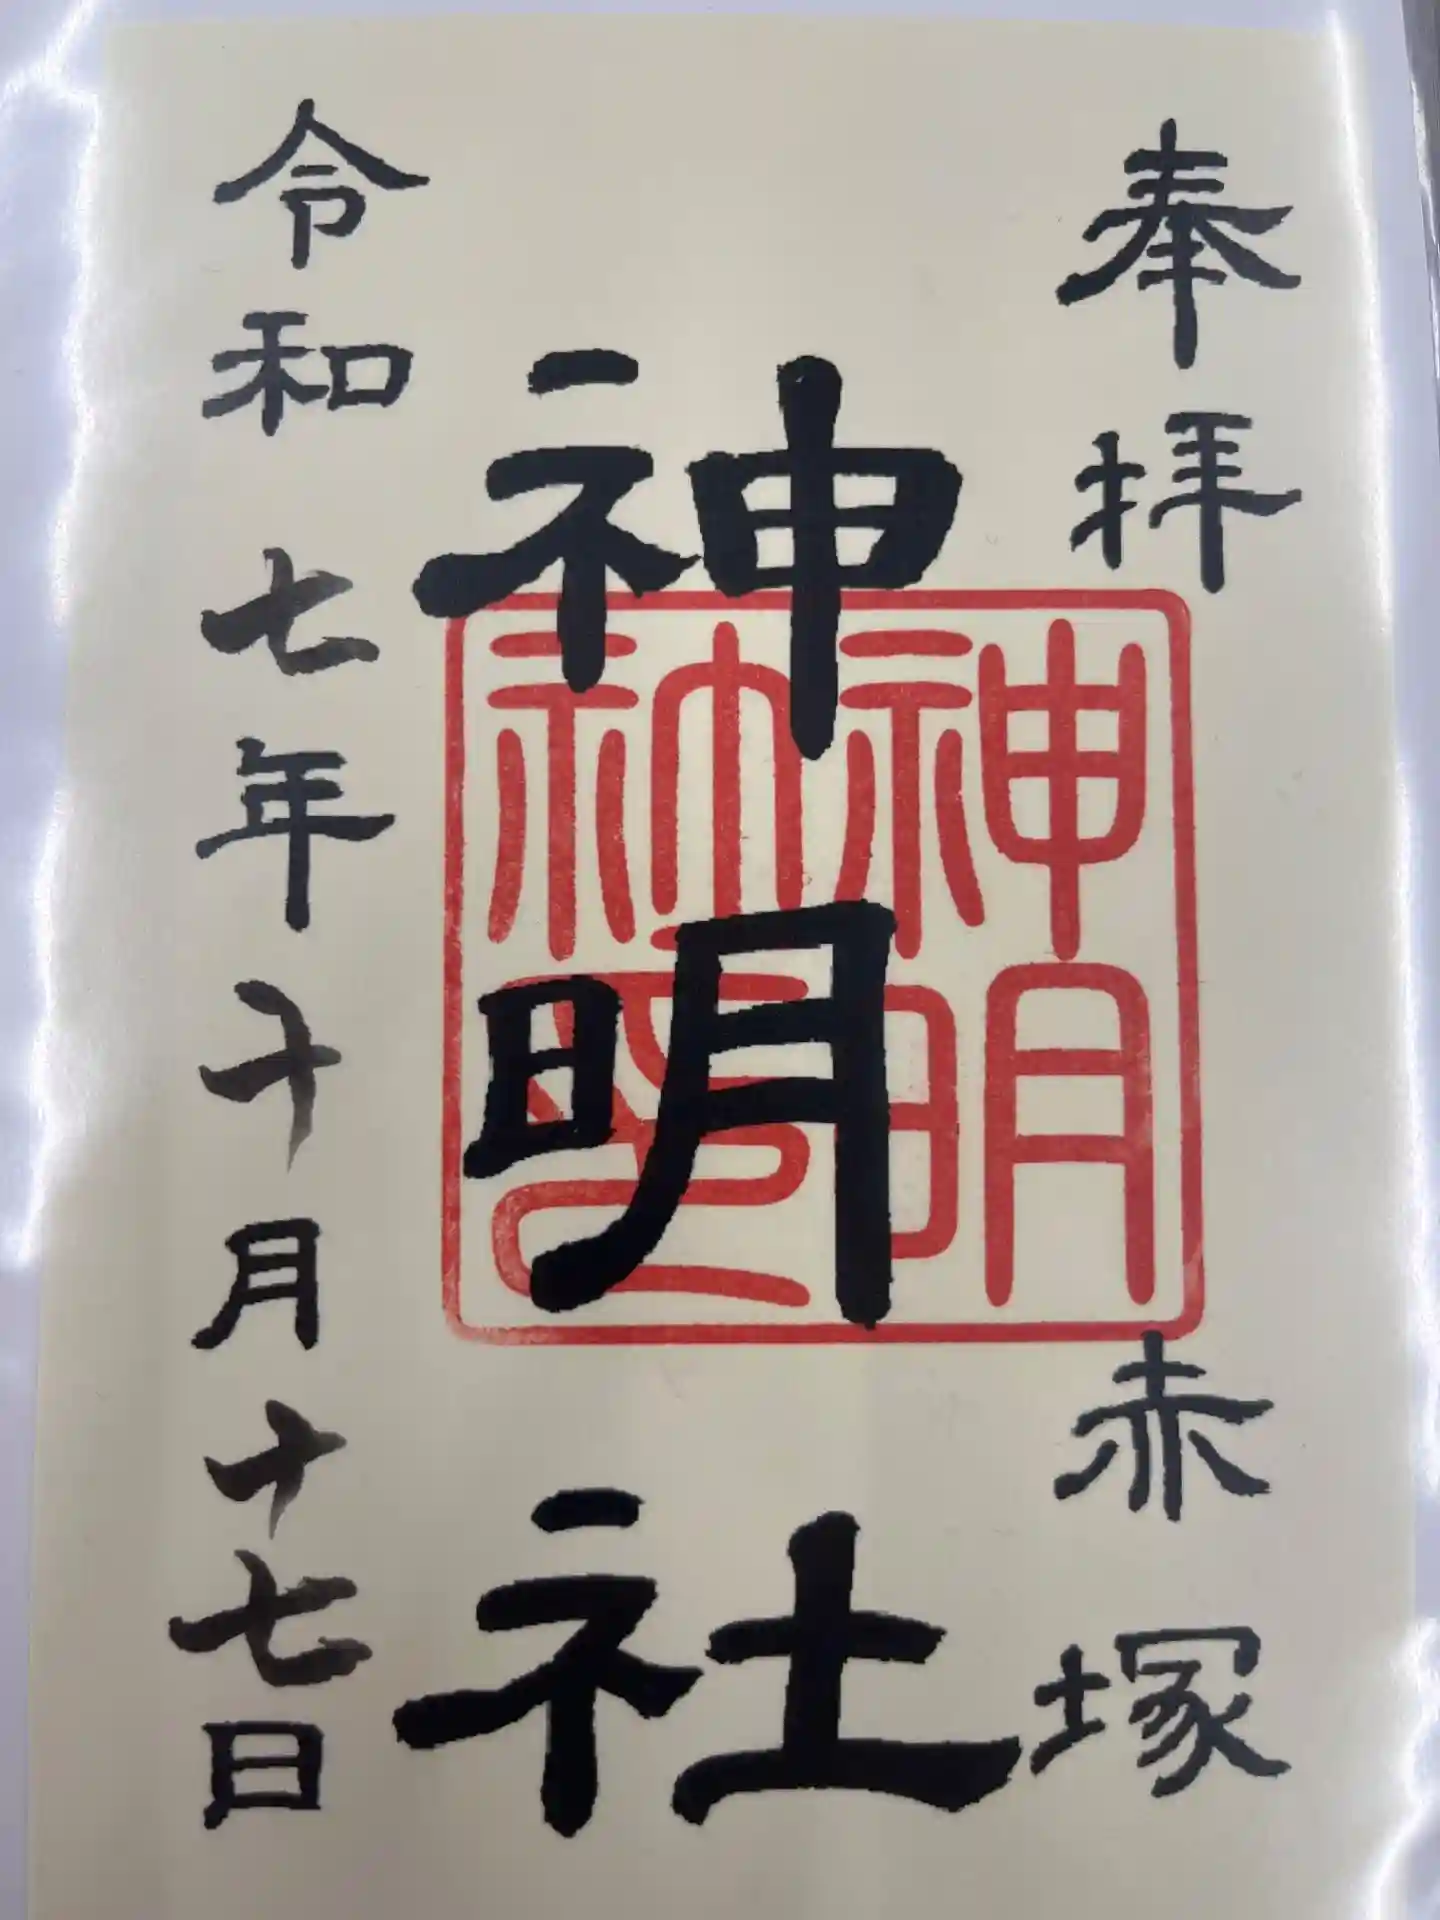 奉拝
赤塚
神明社
神明
社印
令和七年十月十七日